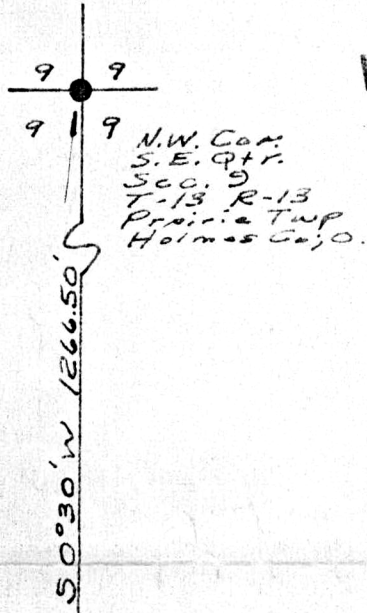 9 9
9 9
N.W. Cor.
S.E. Qtr.
Sec. 9
T-13 R-13
Prairie Twp
Holmes Co., O.
S 0°30' W 1266.50'